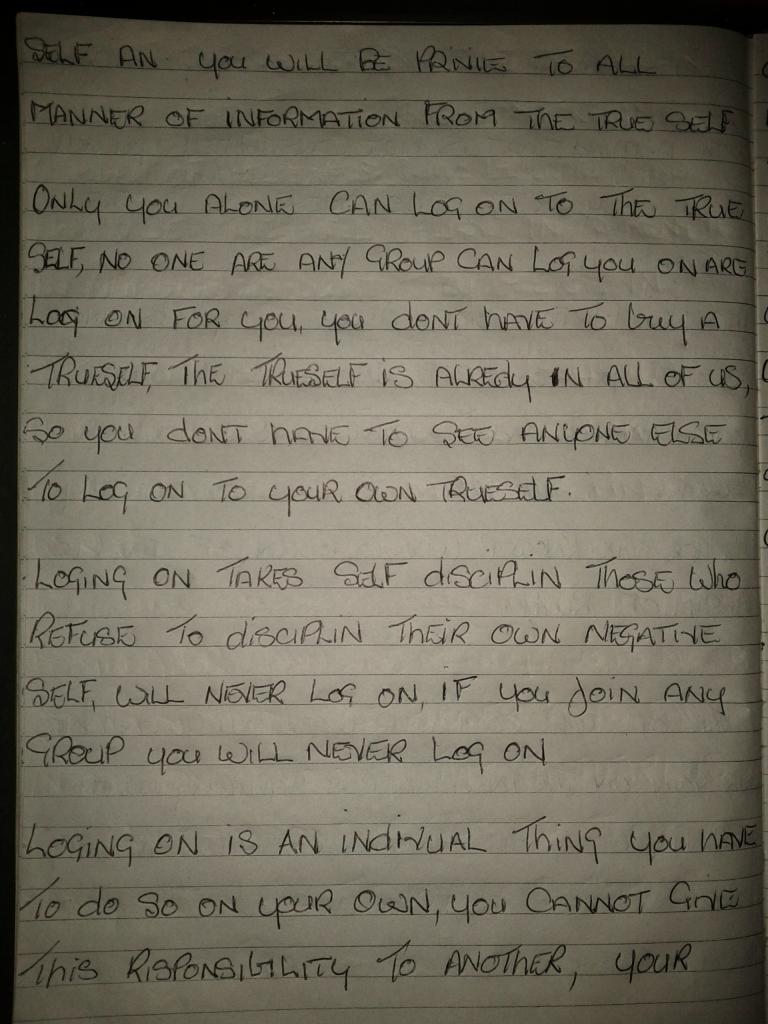 SELF AN. YOU WILL BE PRIVIE TO ALL
MANNER OF INFORMATION FROM THE TRUE SELF
ONLY YOU ALONE CAN LOG ON TO THE TRUE
SELF, NO ONE ARE ANY GROUP CAN LOG YOU ON ARE
LOG ON FOR YOU, YOU DONT HAVE TO BUY A
TRUESELF, THE TRUESELF IS ALREDY IN ALL OF US,
SO YOU DONT HAVE TO SEE ANYONE ELSE
TO LOG ON TO YOUR OWN TRUESELF.
LOGING ON TAKES SELF DISCIPLIN THOSE WHO
REFUSE TO DISCIPLIN THEIR OWN NEGATIVE
SELF, WILL NEVER LOG ON, IF YOU JOIN ANY
GROUP YOU WILL NEVER LOG ON
LOGING ON IS AN INDIVUAL THING YOU HAVE
TO DO SO ON YOUR OWN, YOU CANNOT GIVE
THIS RISPONSIBILITY TO ANOTHER, YOUR